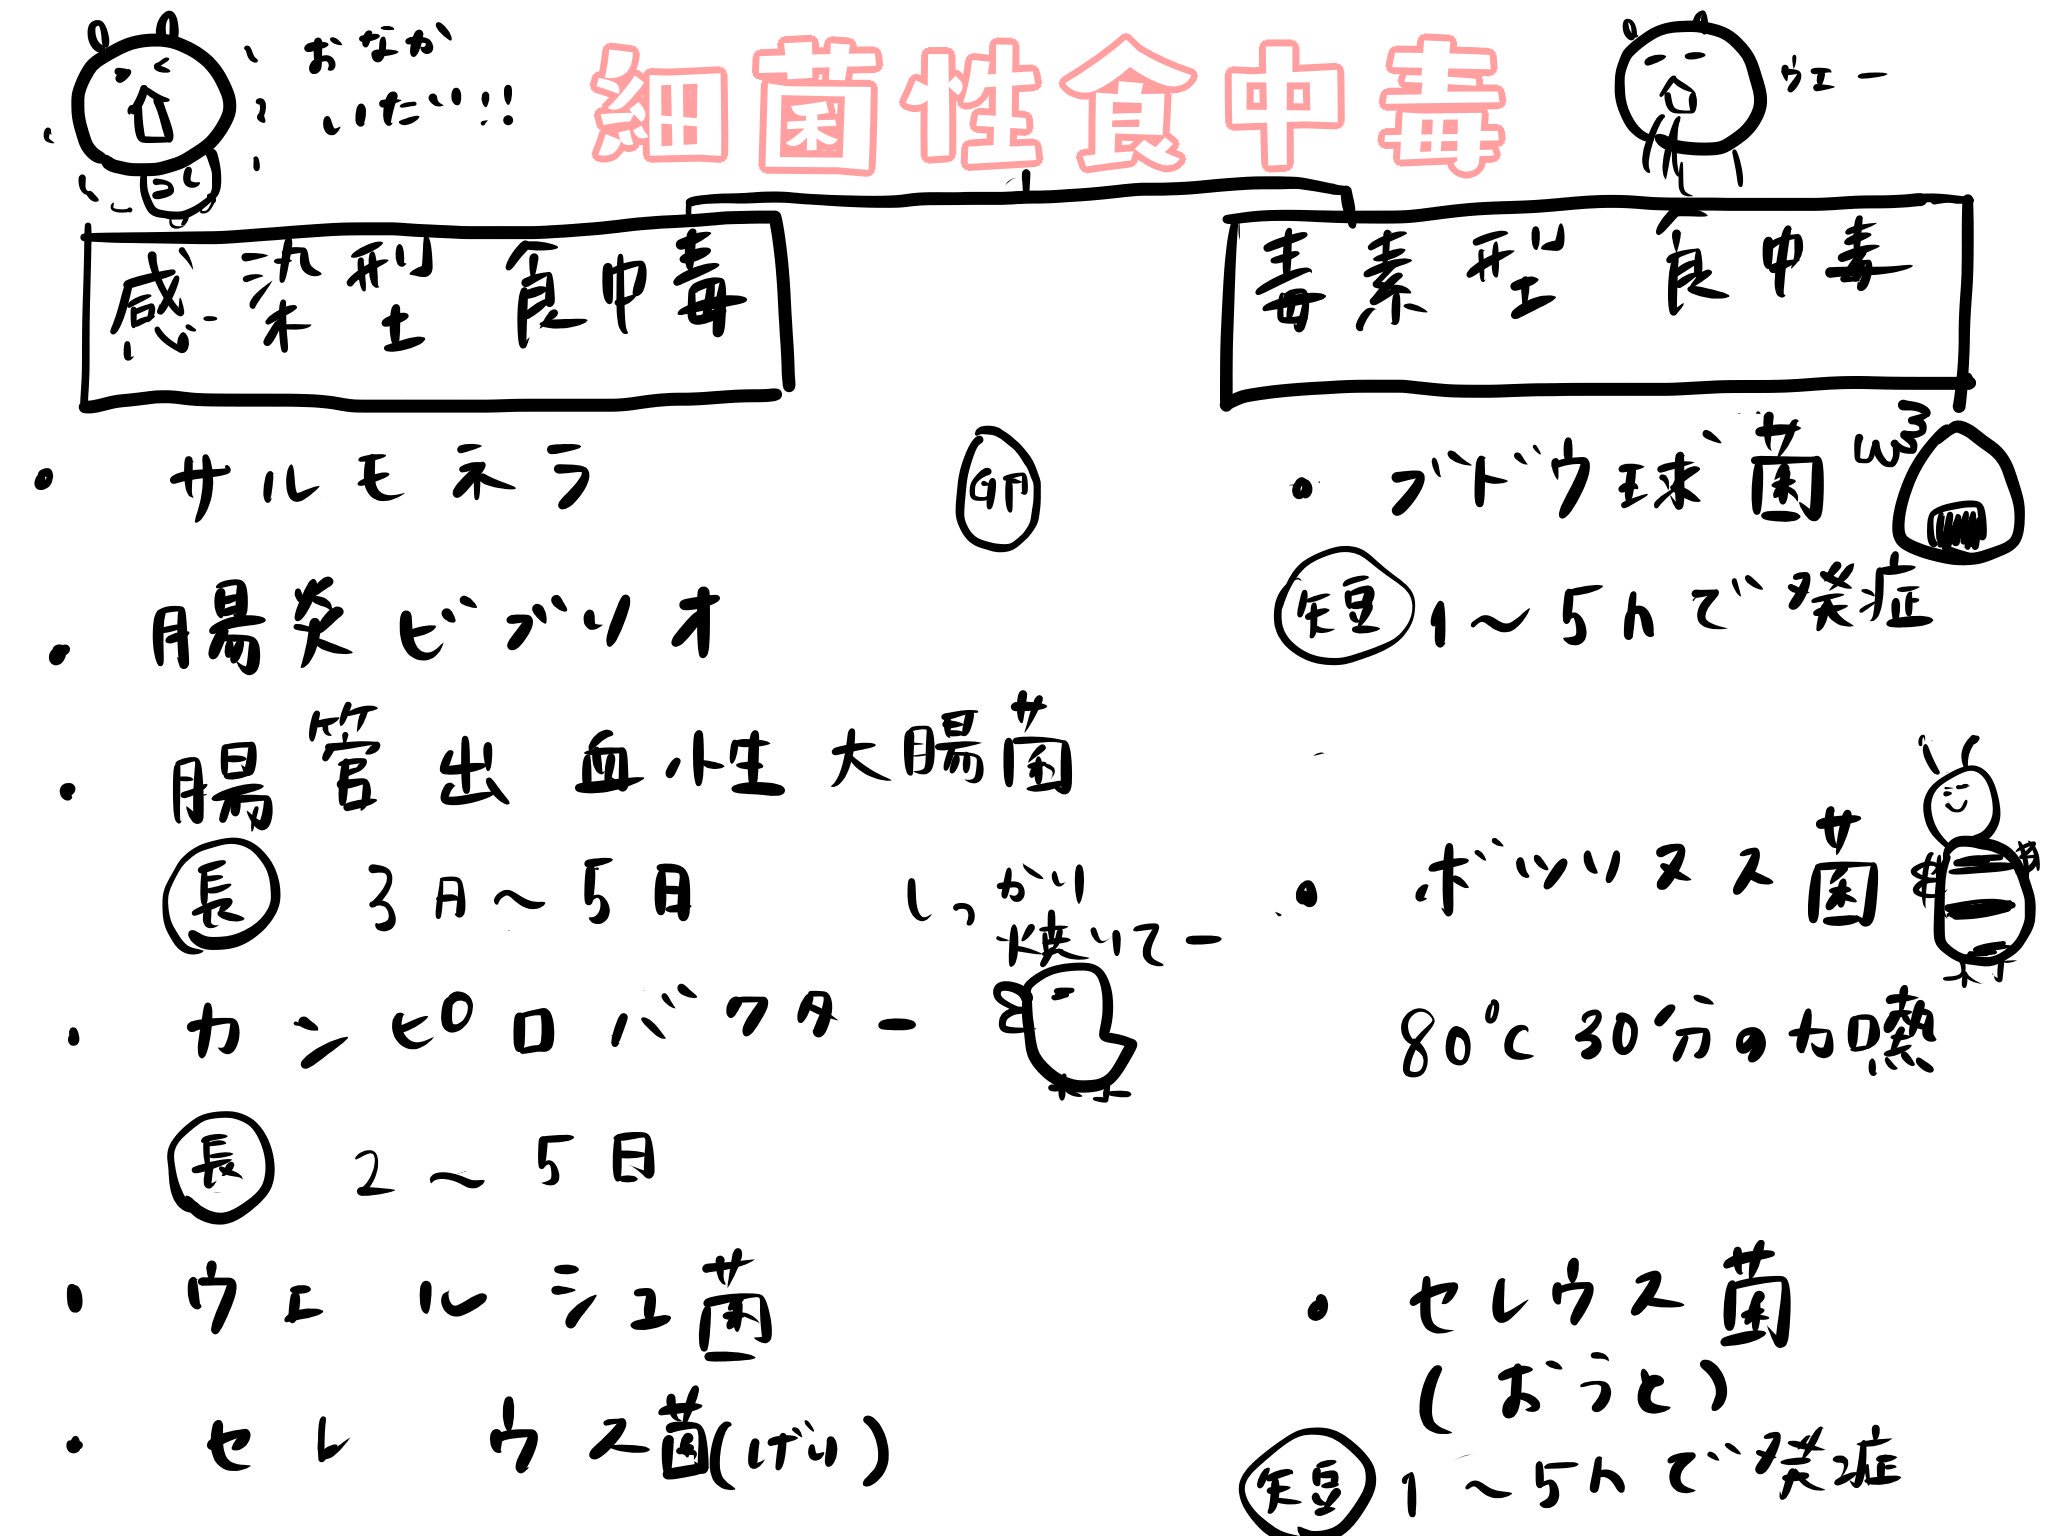 おなか
いたい!!
細菌性食中毒
ウエー
感染型食中毒
・サルモネラ
卵
・腸炎ビブリオ
・腸管出血性大腸菌
長 3日~5日
しっかり
焼いてー
・カンピロバクター
長 2~5日
・ウェルシュ菌
・セレウス菌(げり)
毒素型食中毒
・ブドウ球菌
短 1~5hで発症
・ボツリヌス菌
80℃30分の加熱
・セレウス菌
(おうと)
短 1~5hで発症